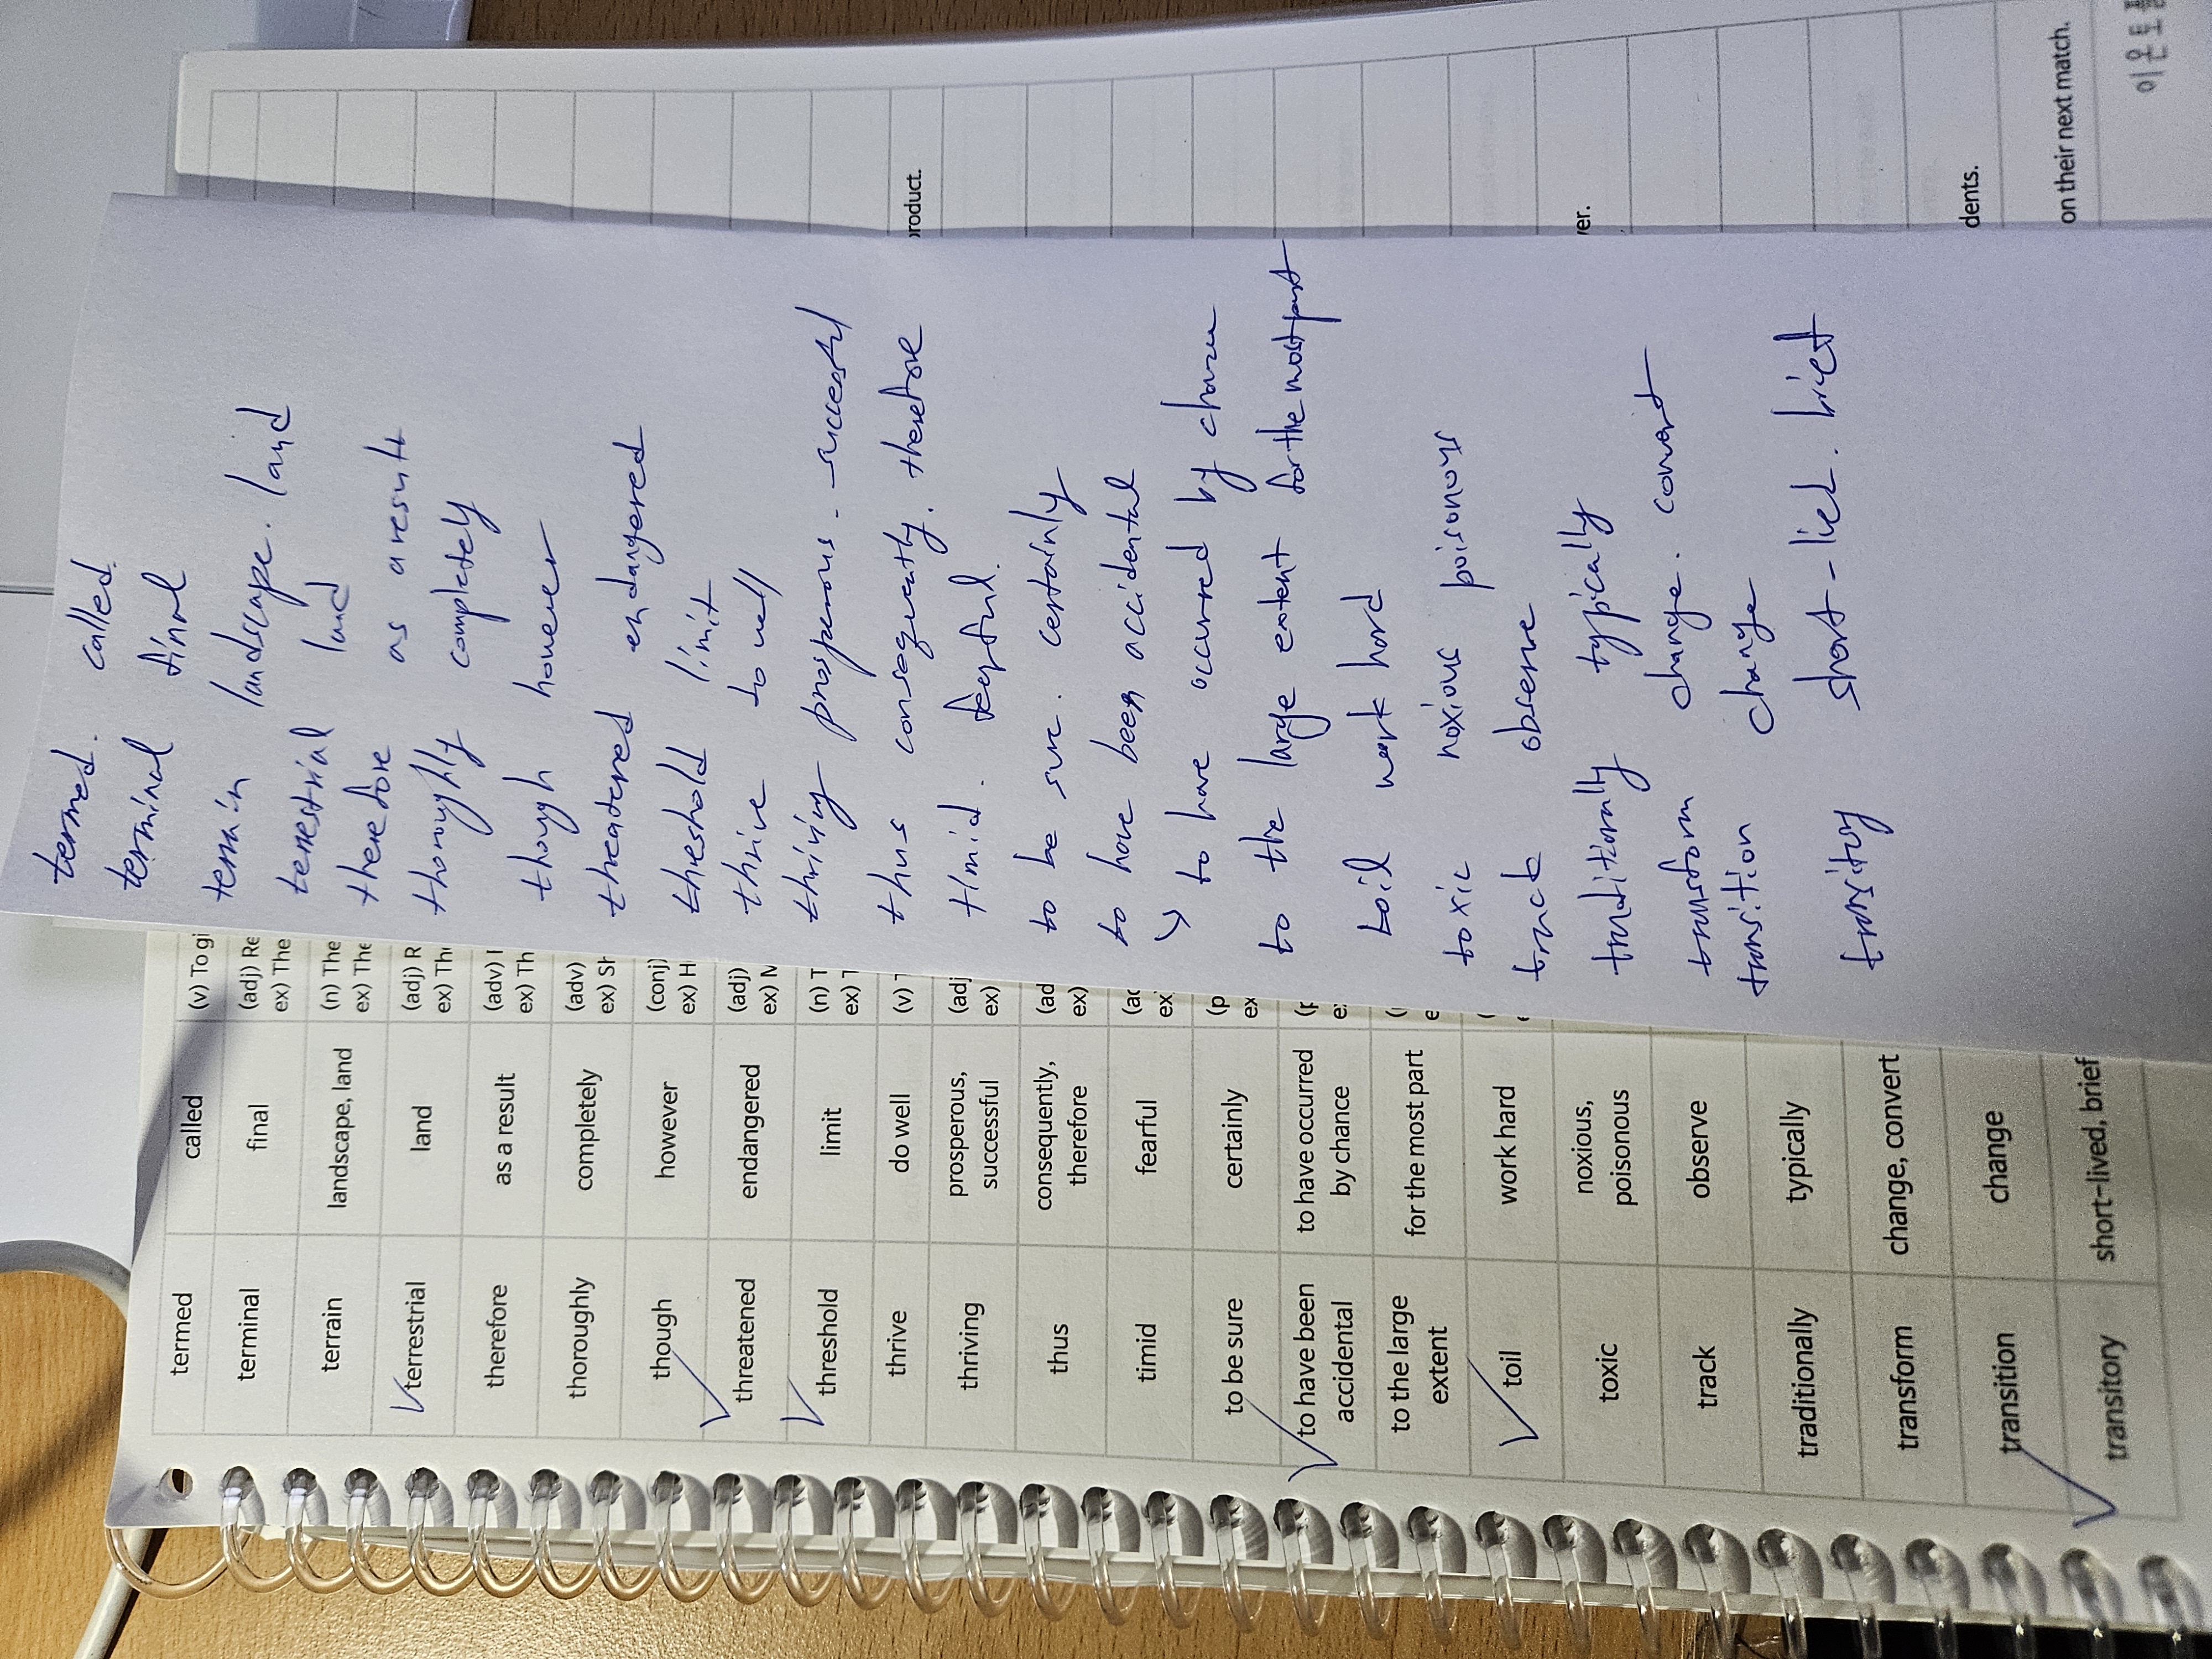 termed called (v) To gi
terminal final (adj) Re
ex) The
terrain landscape, land (n) The
ex) The
terrestrial land (adj) R
ex) Th
therefore as a result (adv) I
ex) Th
thoroughly completely (adv)
ex) Sh
though however (conj)
ex) H
threatened endangered (adj)
ex) M
threshold limit (n) T
ex) T
thrive do well (v) T
thriving prosperous, (adj
successful ex)
thus consequently, (ad
therefore ex)
timid fearful (ad
ex
to be sure certainly (p
ex
to have been to have occurred
accidental by chance
to the large for the most part
extent
toil work hard
toxic noxious,
poisonous
track observe
traditionally typically
transform change, convert
transition change
transitory short-lived, brief
termed. called.
terminal final
terrain landscape. land
terrestrial land
therefore as a result
thoroughly completely
though however
threatered endangered
threshold limit
thrive to well
thriving prosperous. successful
thus consequently. therefore
timid. fearful.
to be sure. certainly
to have been accidental
↳ to have occurred by chance
to the large extent for the most part
toil work hard
toxic noxious poisonous
track observe
traditionally typically
transform change. convert
transition change
transitoy short-lied. brief
product.
ver.
dents.
on their next match.